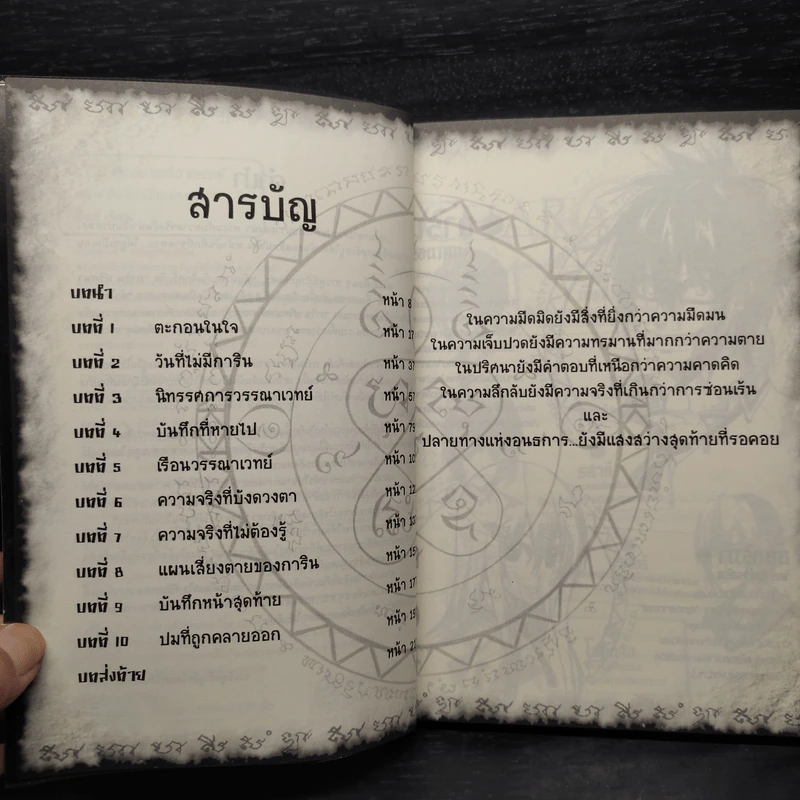 สารบัญ
บทนำ หน้า 8
บทที่ 1 ตะกอนในใจ หน้า
บทที่ 2 วันที่ไม่มีการิน หน้า 37
บทที่ 3 นิทรรศการวรรณาเวทย์ หน้า 57
บทที่ 4 บันทึกที่หายไป หน้า 79
บทที่ 5 เรือนวรรณาเวทย์ หน้า
บทที่ 6 ความจริงที่บังดวงตา หน้า
บทที่ 7 ความจริงที่ไม่ต้องรู้ หน้า
บทที่ 8 แผนเสี่ยงตายของการิน หน้า
บทที่ 9 บันทึกหน้าสุดท้าย หน้า
บทที่ 10 ปมที่ถูกคลายออก หน้า
บทส่งท้าย หน้า
ในความมืดมิดยังมีสิ่งที่ยิ่งกว่าความมืดมน
ในความเจ็บปวดยังมีความทรมานที่มากกว่าความตาย
ในปริศนายังมีคำตอบที่เหนือกว่าความคาดคิด
ในความลึกลับยังมีความจริงที่เกินกว่าการซ่อนเร้น
และ
ปลายทางแห่งอนธการ...ยังมีแสงสว่างสุดท้ายที่รอคอย